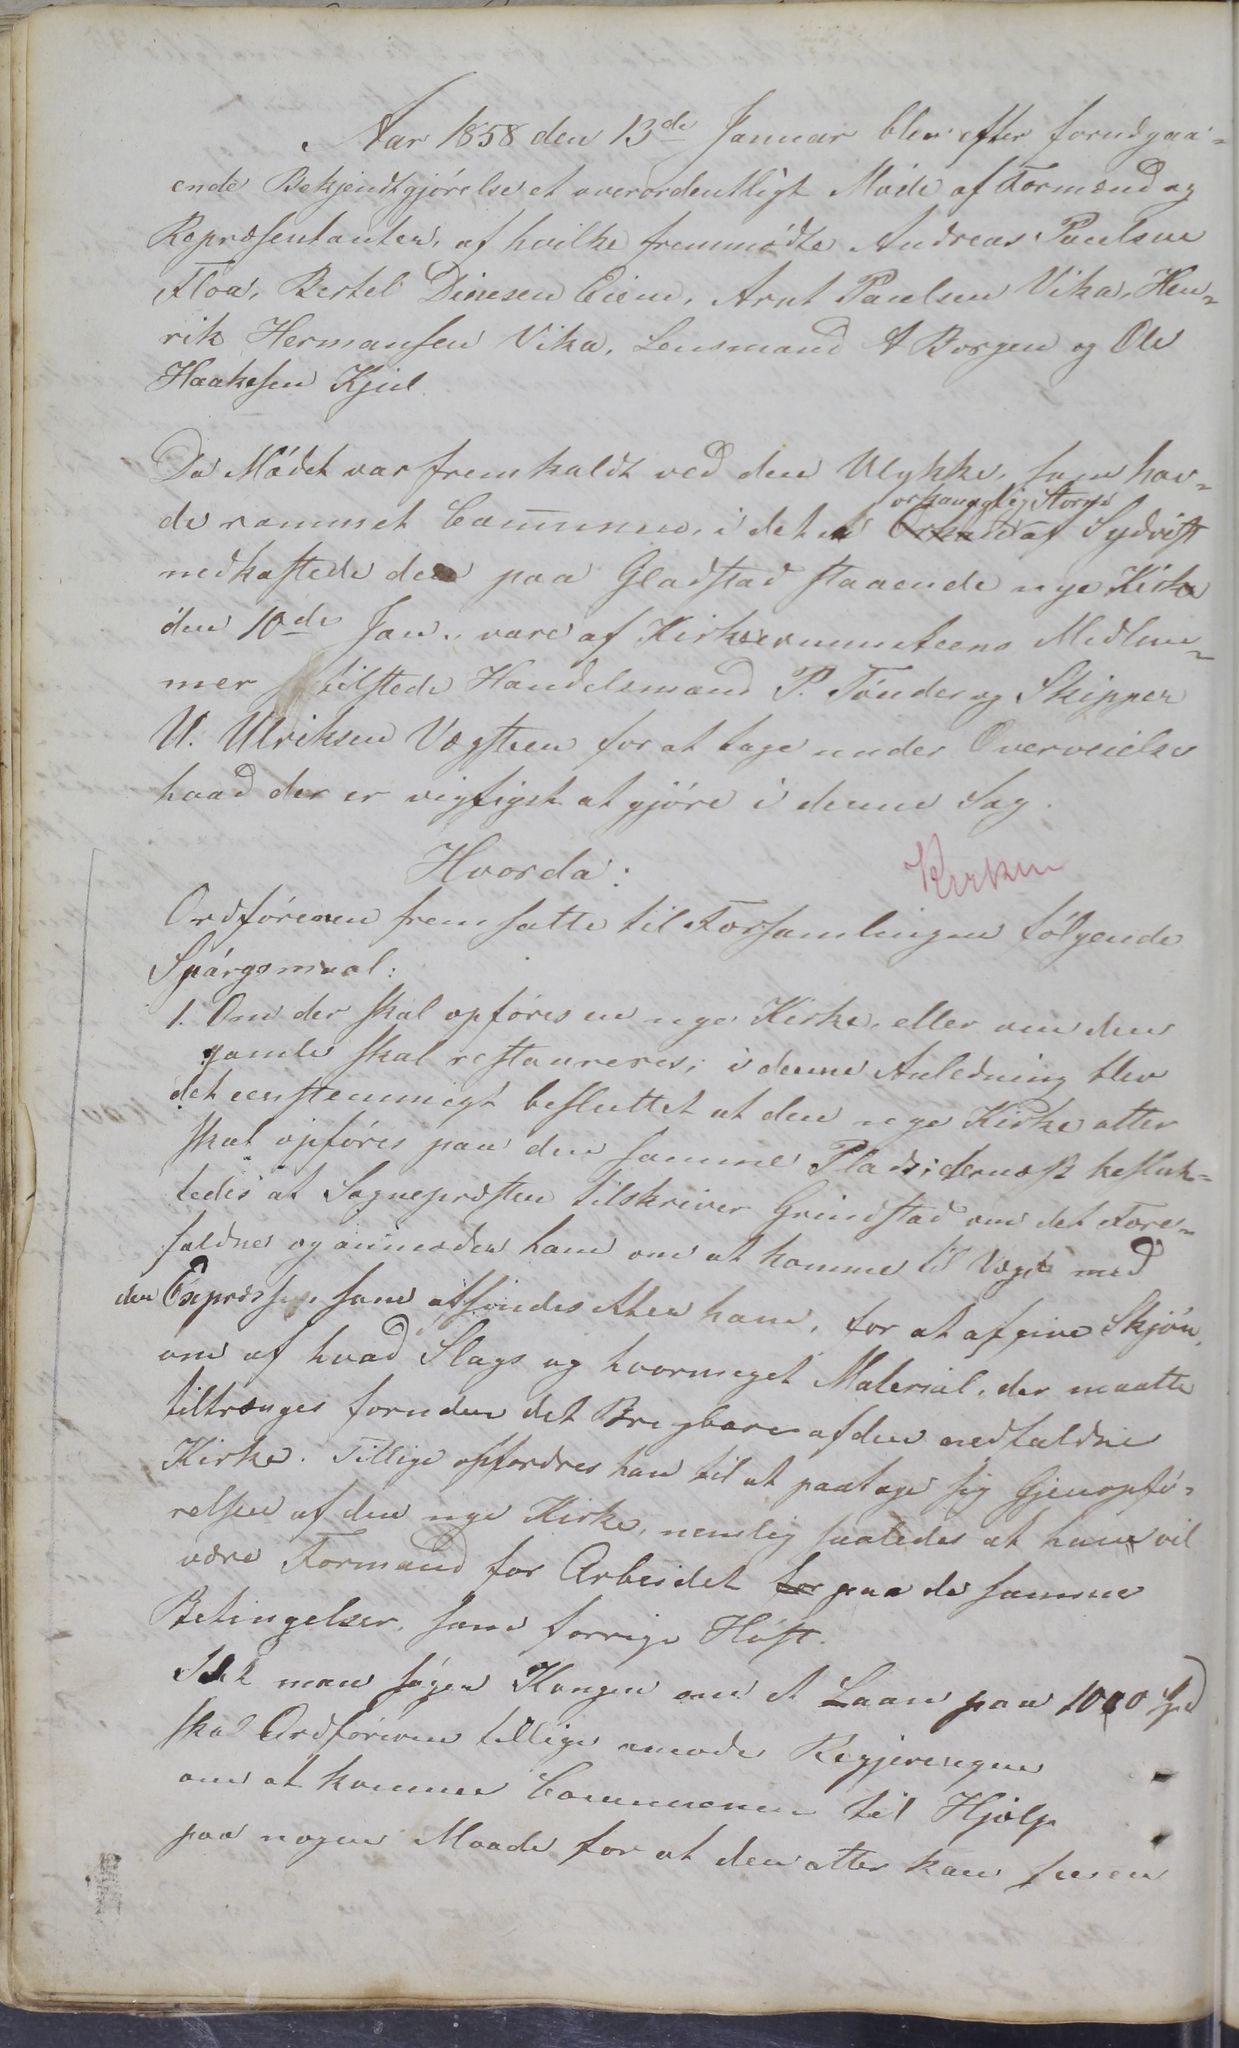 Aar 1858 den 13de Januar blev efter forudgaa-
ende Bekjendtgjørelse et overordentligt Møde af Formænd og
Repræsentanter, af hvilke fremmødte Andreas Paulsen
Floa, Bertel Dinesen Eiem, Arnt Paulsen Vika, Hen-
rik Hermansen Vika, Lensmand A Borgen og Ole
Haakesen Kjul
Da Mødet var fremkaldt ved den Ulykke, som hav-
de rammet Communen, i det en orkanagtig Storm
Orkan af Sydvest
nedkastede den paa Gladstad staaende nye Kirke
den 10de Jan., vare af Kirkecommiteens Medlem-
mer tilstede Handelsmand P. Tønder og Skipper
U. Ulriksen Vægsteen for at tage under Overveielse
hvad der er vigtigst at gjøre i denne Sag.
Hvorda:
Kirken
Ordføreren fremsatte til Forsamlingen følgende
Spørgsmaal:
1. Om der skal opføres en nye Kirke, eller om den
gamle skal restaureres; i denne Anledning blev
det eenstemmigt besluttet at den nye Kirke atter
skal opføres paa den samme Plads; dernæst beslut-
tedes at Sognepræsten tilskriver Grindstad om det Fore-
faldne og anmoder ham om at komme til Vega med
den Expressen som afsendes etter ham, for at afgive Skjøn,
om af hvad Slags og hvormeget Material, der maatte
tiltrænges foruden det Brugbare af den nedfaldne
Kirke. Tillige opfordres han til at paatage sig Gjenopfø-
relsen af den nye Kirke, nemlig saaledes at han vil
være Formand for Arbeidet for paa de samme
Betingelser, som forrige Høst.
Idet man søger Kongen om et Laan paa 1000 Spd
skal Ordføreren tillige anmode Regjeringen
om at komme Communen til Hjelp
paa nogen Maade for at den atter kan